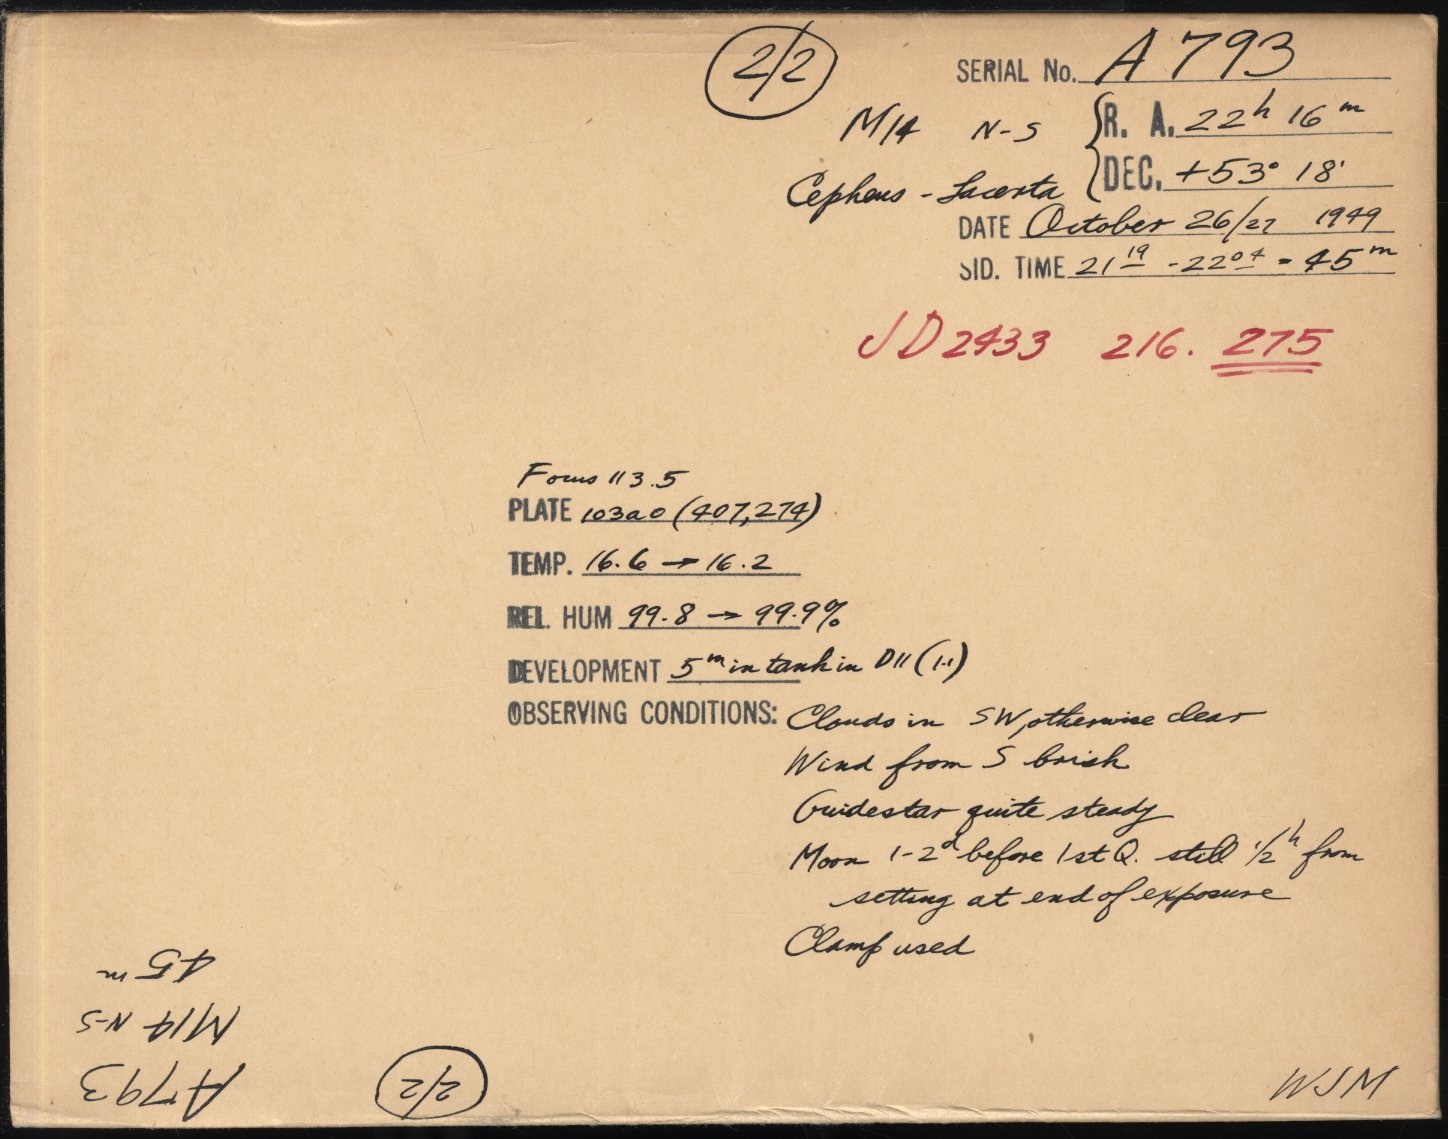 2/2
SERIAL No. A 793
M14 N-S R. A. 22h 16m
Cepheus - Lacerta DEC. +53° 18'
DATE October 26/27 1949
SID. TIME 21 19 - 22 04 = 45m
JD 2433 216.275
Focus 113.5
PLATE 103aO (407,274)
TEMP. 16.6 → 16.2
REL. HUM 99.8 → 99.9%
DEVELOPMENT 5m in tank in D11 (1:1)
OBSERVING CONDITIONS: Clouds in SW, otherwise clear
Wind from S brisk
Guidestar quite steady
Moon 1-2d before 1st Q. still 1/2h from
setting at end of exposure
Clamp used
WJM
2/2
A793
M14 N-S
45m